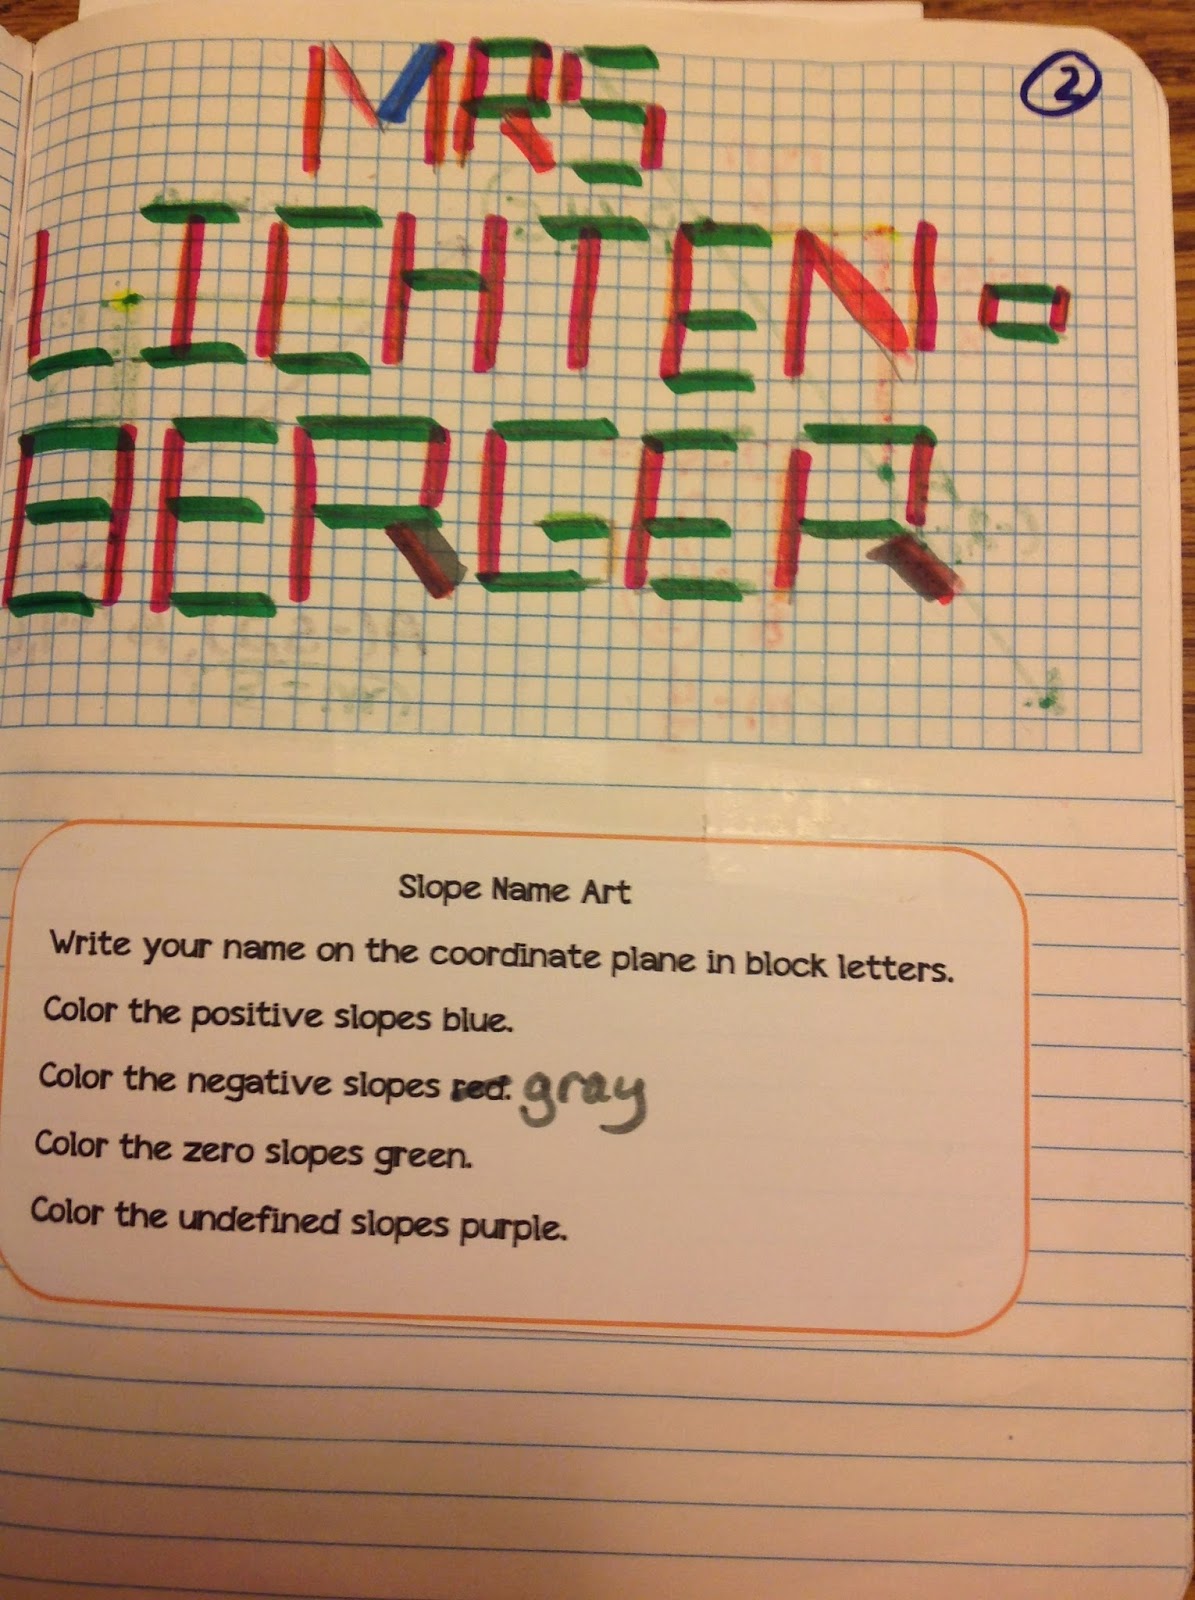 MRS 2
LICHTEN-
BERGER
Slope Name Art
Write your name on the coordinate plane in block letters.
Color the positive slopes blue.
Color the negative slopes red. gray
Color the zero slopes green.
Color the undefined slopes purple.